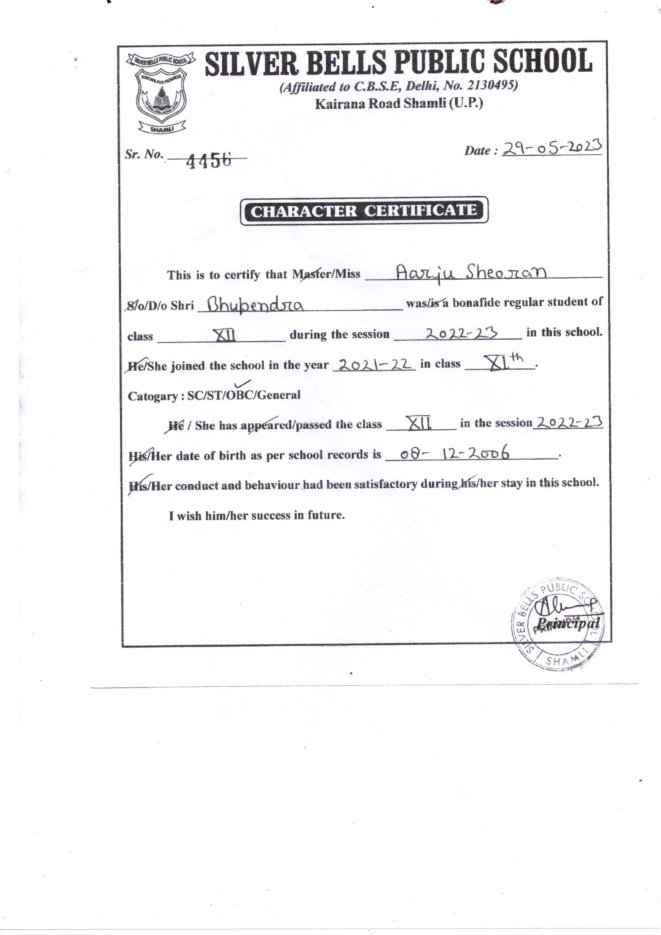 SILVER BELLS PUBLIC SCHOOL
SHAMLI
SILVER BELLS PUBLIC SCHOOL
(Affiliated to C.B.S.E, Delhi, No. 2130495)
Kairana Road Shamli (U.P.)
Sr. No. 4456
Date : 29-05-2023
CHARACTER CERTIFICATE
This is to certify that Master/Miss Aarju Sheoran
S/o/D/o Shri Bhupendra was/is a bonafide regular student of
class XII during the session 2022-23 in this school.
He/She joined the school in the year 2021-22 in class XIth.
Catogary : SC/ST/OBC/General
He / She has appeared/passed the class XII in the session 2022-23
His/Her date of birth as per school records is 08-12-2006.
His/Her conduct and behaviour had been satisfactory during his/her stay in this school.
I wish him/her success in future.
Principal
SILVER BELLS PUBLIC
SHAMLI